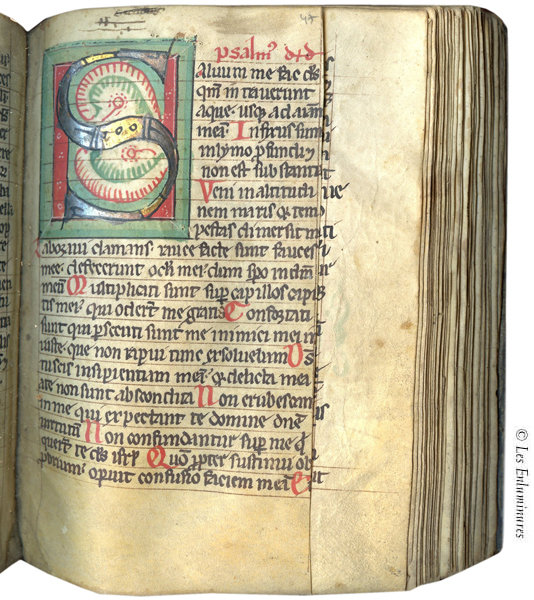 47
psalm' d+d
S
Aluum me fac ds
qm intrauerunt
aque. usq; ad aiam
meā. Infixus sum
in lymo pfundi ⁊
non est substantia
Veni in altitudi
nem maris ⁊ tem
pestas dimersit
Laboraui clamans. rauce facte sunt fauces
mee. defecerunt ocli mei. dum spo in dm
meū Multiplicati sunt sup capillos capi
tis mei. qui oderūt me gratis Confortati
sunt qui psecuti sunt me inimici mei in
iuste. que non rapui tunc exsoluebam Ds
tu scis insipientiam meā. ⁊ delicta mei
a te non sunt abscondita Non erubescant
in me qui expectant te domine dne
uirtutū Non confundantur sup me q
querūt te ds isrl. Qm ppter sustinui ob
probrium. opuit confusio faciem meā
© Les Enluminures